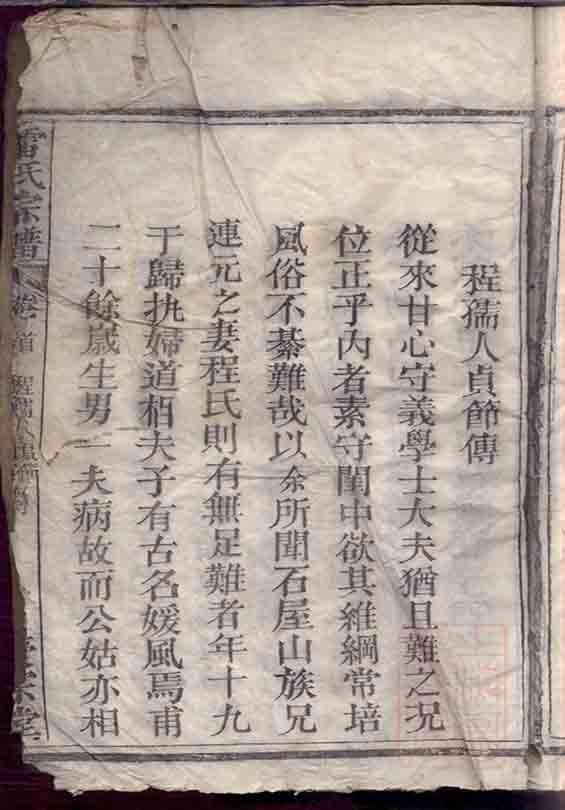 程孺人貞節傳
從來甘心守義學士大夫猶且難之況
位正乎內者素守閨中欲其維綱常培
風俗不綦難哉以余所聞石屋山族兄
連元之妻程氏則有無足難者年十九
于歸执婦道相夫子有古名媛風焉甫
二十餘嵗生男一夫病故而公姑亦相
雷氏宗譜
卷首
程孺人貞節傳
堂